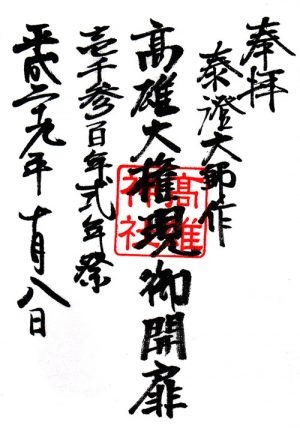 奉拝
泰澄大師作
高雄大権現御開扉
壱千参百年式年祭
平成二十九年 十月八日
高雄
神社